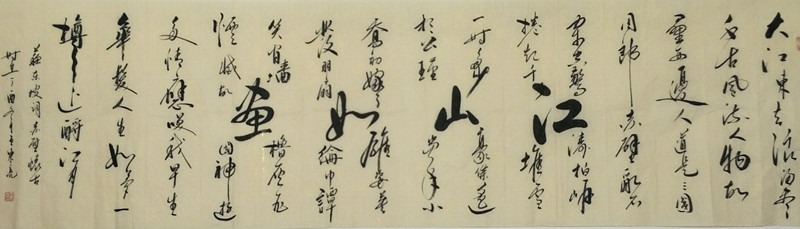 大江東去浪淘盡
千古風流人物故
壘西邊人道是三國
周郎赤壁亂石
驚濤拍岸
捲起千堆雪
江山如畫
一時多少豪傑遙
想公瑾當年小
喬初嫁了雄姿英
發羽扇綸巾譚
笑間檣櫓灰飛
煙滅故國神遊
多情應笑我早生
華髮人生如夢一
樽還酹江月
蘇東坡詞赤壁懷古
時在丁酉年